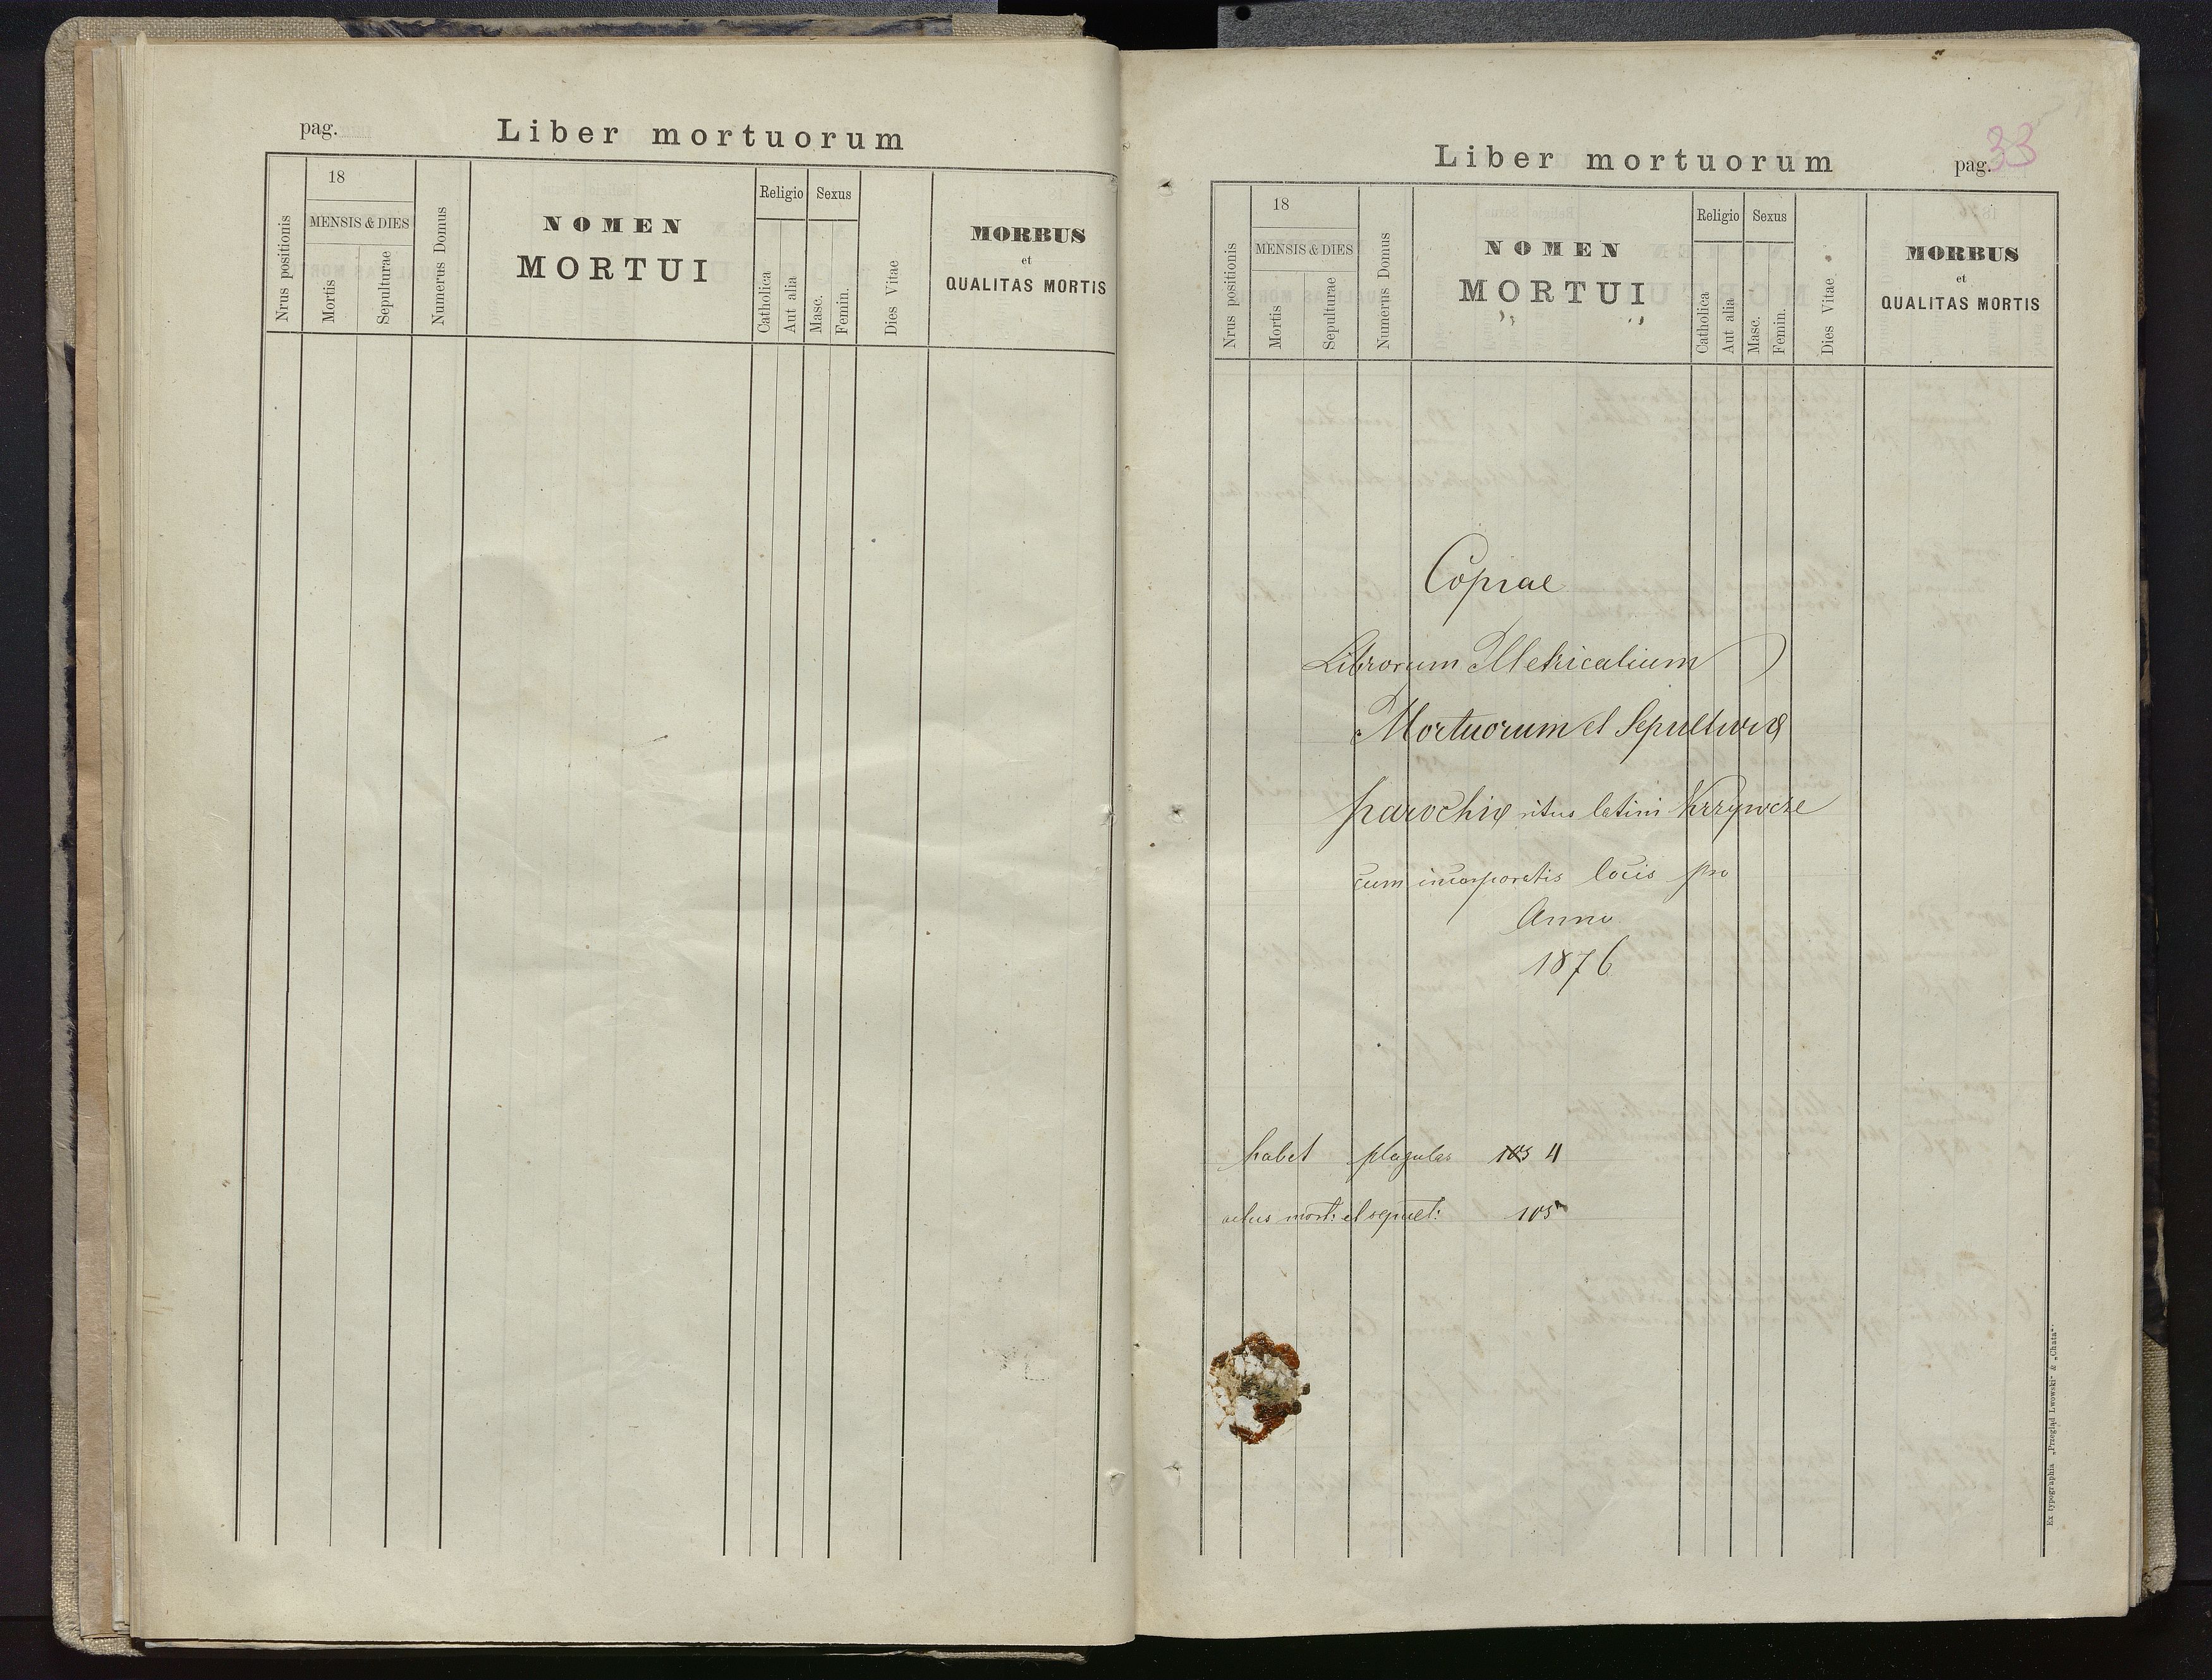 pag.
Liber mortuorum
Nrus positionis
18
MENSIS & DIES
Mortis
Sepulturae
Numerus Domus
NOMEN
MORTUI
Religio
Catholica
Aut alia
Sexus
Masc.
Femin.
Dies Vitae
MORBUS
et
QUALITAS MORTIS
Liber mortuorum
pag. 33
Nrus positionis
18
MENSIS & DIES
Mortis
Sepulturae
Numerus Domus
NOMEN
MORTUI
Religio
Catholica
Aut alia
Sexus
Masc.
Femin.
Dies Vitae
MORBUS
et
QUALITAS MORTIS
Copiae
Librorum Metricalium
Mortuorum et Sepulturæ
parochiæ ritus latini Krzywcze
cum incorporatis locis pro
Anno
1876
habet plagulas 103 11
actus mort: et sepult: 105
Ex typographia „Przegląd Lwowski" & „Chata".